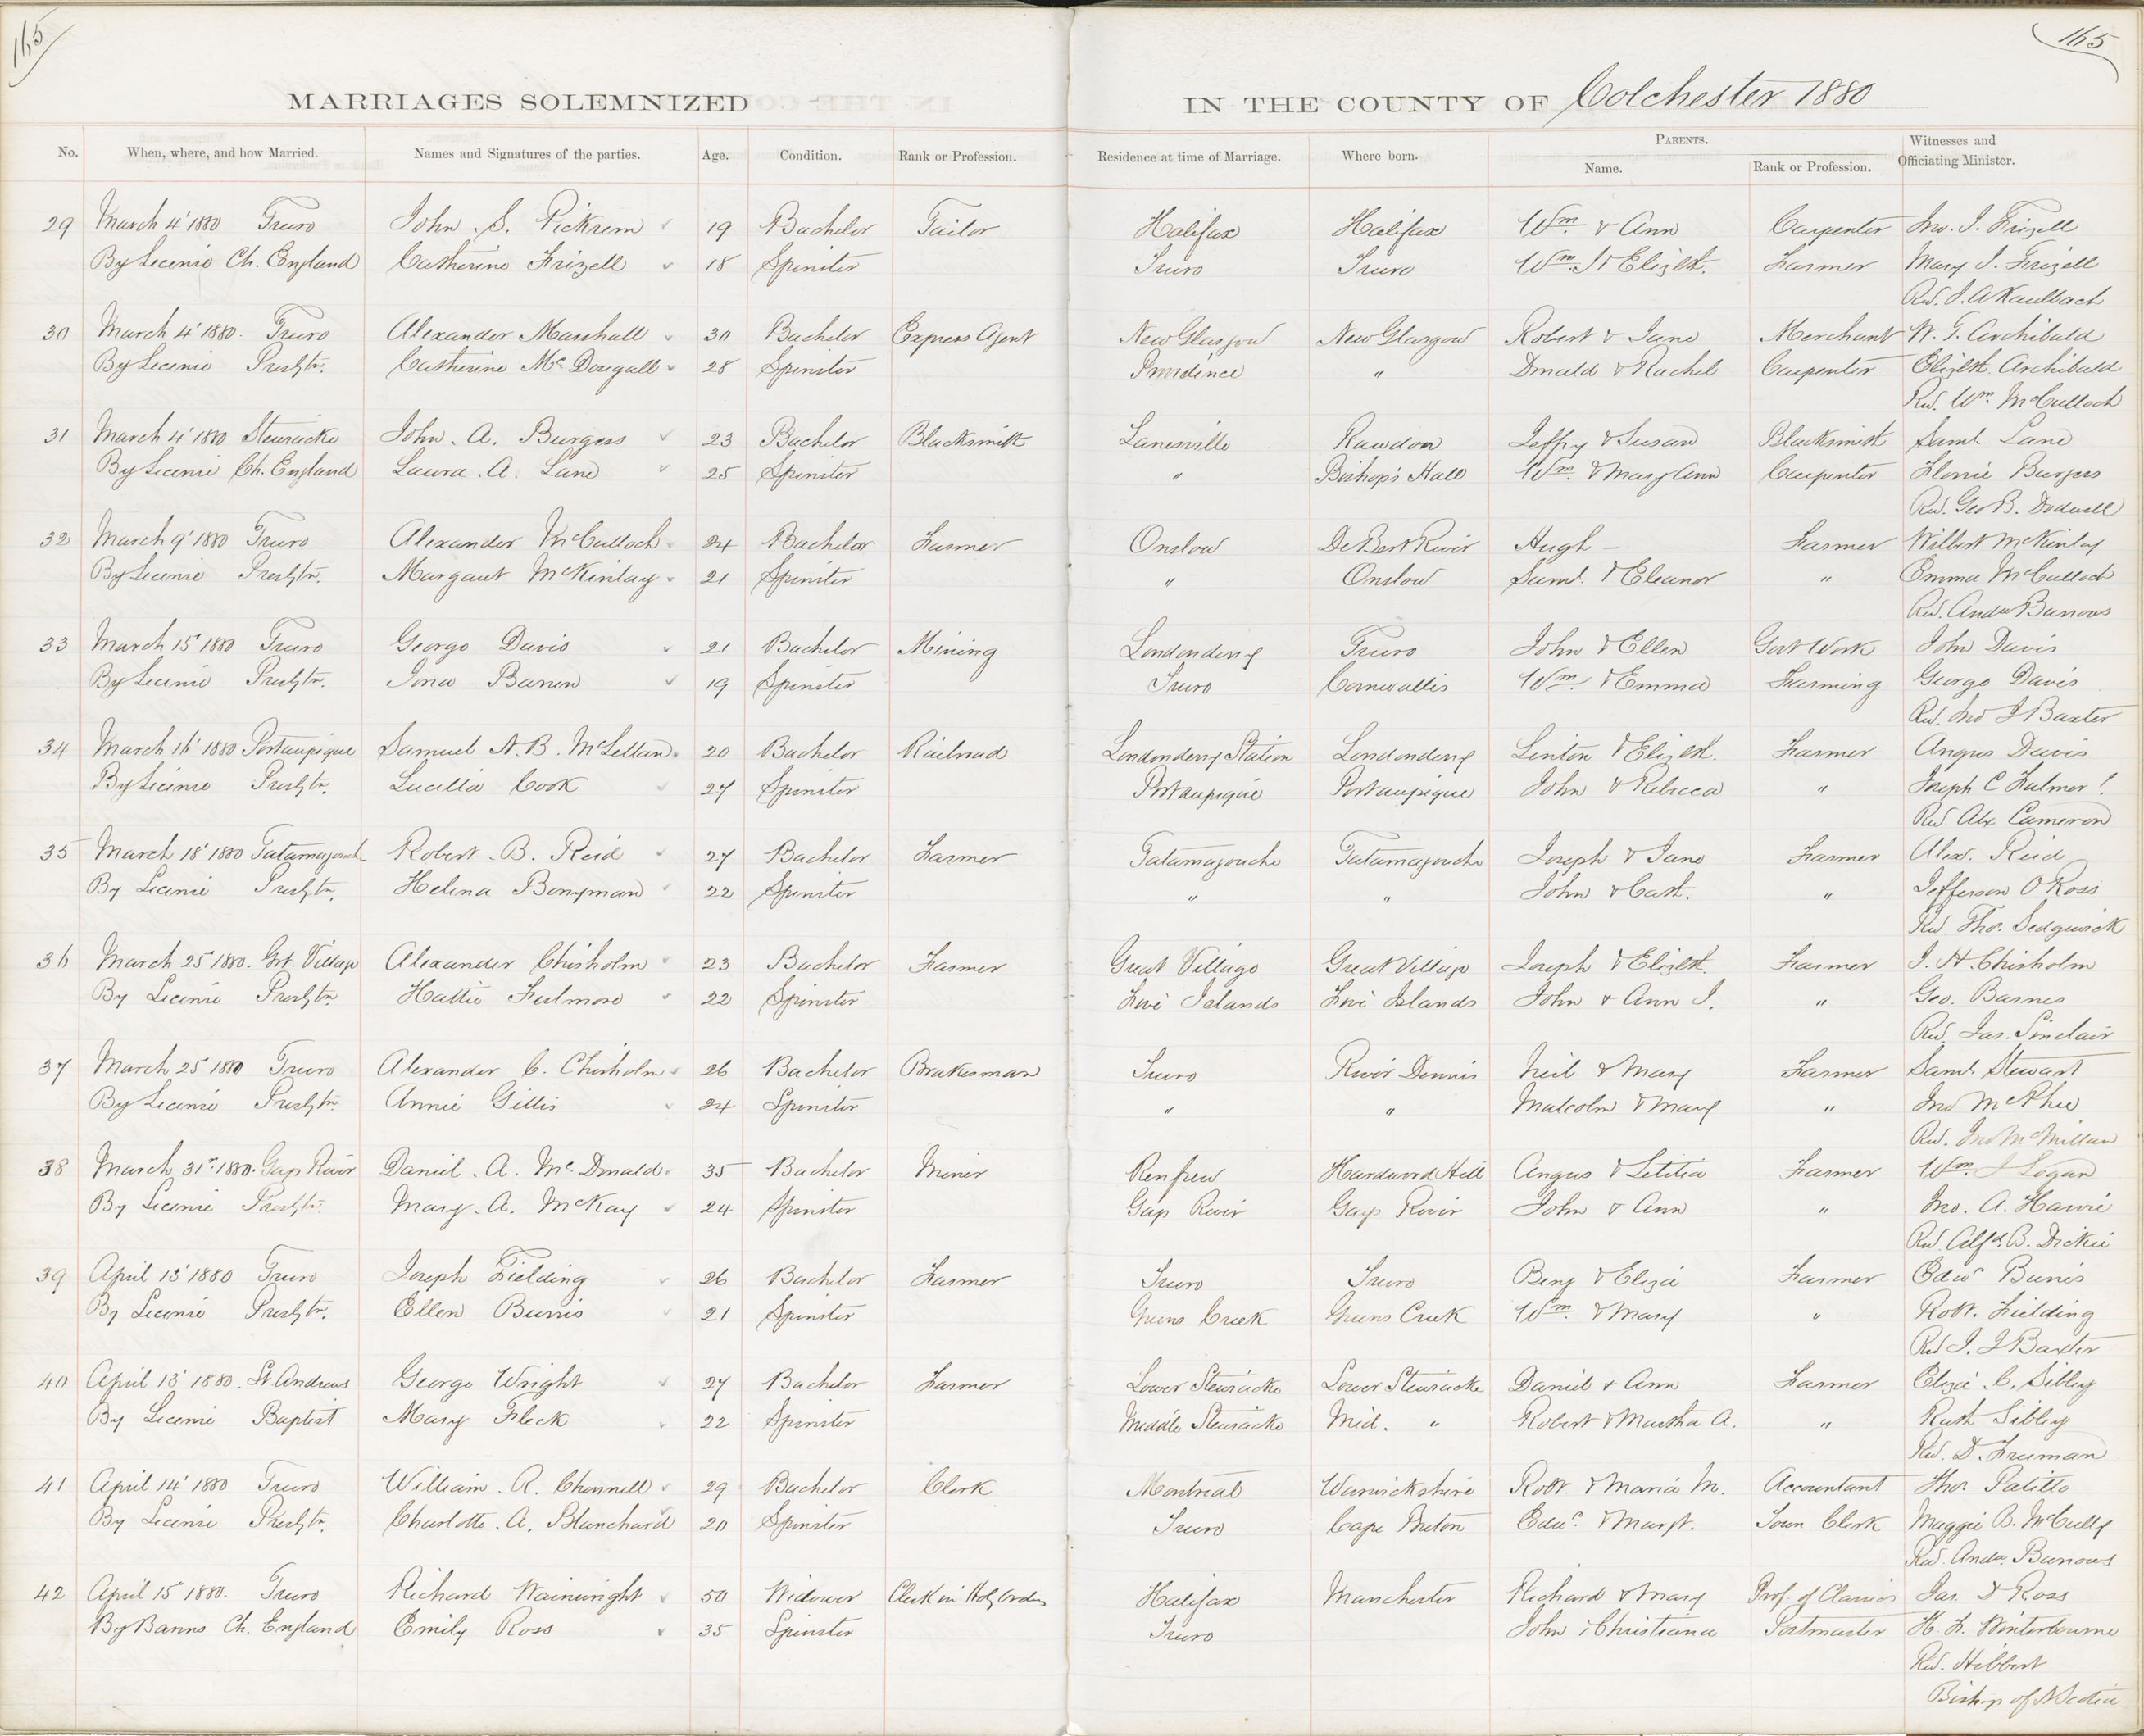 165
165
MARRIAGES SOLEMNIZED IN THE COUNTY OF Colchester 1880
No. When, where, and how Married. Names and Signatures of the parties. Age. Condition. Rank or Profession. Residence at time of Marriage. Where born. PARENTS. Name. Rank or Profession. Witnesses and Officiating Minister.
29 March 4' 1880 Truro John S. Pickrem 19 Bachelor Tailor Halifax Halifax Wm & Ann Carpenter Jno. J. Frizell
By Licence Ch. England Catherine Frizell 18 Spinster Truro Truro Wm J & Elizbt. Farmer Mary J. Frizell
Rev. J. A Kaulbach
30 March 4' 1880. Truro Alexander Marshall 30 Bachelor Express Agent New Glasgow New Glasgow Robert & Jane Merchant W. G. Archibald
By Licence Presbtn. Catherine McDougall 28 Spinster Providence " Donald & Rachel Carpenter Elizbt. Archibald
Rev. Wm. McCulloch
31 March 4' 1880 Stewiacke John. A. Burgess 23 Bachelor Blacksmith Lanesville Rawdon Jeffry & Susan Blacksmith Saml Lane
By Licence Ch. England Laura. A. Lane 25 Spinster " Bishop's Hall Wm. & Mary Ann Carpenter Florrie Burgess
Rev. Geo B. Dodwell
32 March 9' 1880 Truro Alexander McCulloch 24 Bachelor Farmer Onslow De Bert River Hugh – Farmer Wilbert McKinlay
By Licence Presbtn. Margaret McKinlay 21 Spinster " Onslow Saml. & Eleanor " Emma McCulloch
Rev. Andw Burrows
33 March 15' 1880 Truro George Davis 21 Bachelor Mining Londonderry Truro John & Ellen Govt Work John Davis
By Licence Presbtn. Iona 19 Spinster Truro Cornwallis Wm. & Emma Farming George Davis
Rev. Jno J Baxter
34 March 16' 1880 Portaupique Samuel N. B. McLellan 20 Bachelor Railroad Londonderry Station Londonderry Linton & Elizbt. Farmer Angus Davis
By Licence Presbtn. Lucilla Cook 27 Spinster Portaupique Portaupique John & Rebecca " Joseph C Fulmer!
Rev. Alx Cameron
35 March 18' 1880 Tatamagouche Robert. B. Reid 27 Bachelor Farmer Tatamagouche Tatamagouche Joseph & Jane Farmer Alex. Reid
By Licence Presbtn. Helena Bonyman 22 Spinster " " John & Cath. " Jefferson O Ross
Rev. Thos. Sedgwick
36 March 25' 1880. Grt. Village Alexander Chisholm 23 Bachelor Farmer Great Village Great Village Joseph & Elizbt. Farmer J. H. Chisholm
By Licence Presbtn Hattie Fulmore 22 Spinster Five Islands Five Islands John & Ann J. " Geo. Barnes
Rev. Jas. Sinclair
37 March 25' 1880 Truro Alexander C. Chisholm 26 Bachelor Brakesman Truro River Dennis Neil & Mary Farmer Saml Stewart
By Licence Presbtn Annie Gillis 24 Spinster " " Malcolm & Mary " Jno McPhee
Rev. Jno McMillan
38 March 31st. 1880. Gays River Daniel. A. McDonald 35 Bachelor Miner Renfrew Hardwood Hill Angus & Letitia Farmer Wm. J Logan
By Licence Presbtn. Mary. A. McKay 24 Spinster Gays River Gays River John & Ann " Jno. A. Harvie
Rev. Alfd. B. Dickie
39 April 13' 1880 Truro Joseph Fielding 26 Bachelor Farmer Truro Truro Benj & Eliza Farmer Edwd Burris
By Licence Presbtn. Ellen Burris 21 Spinster Greens Creek Greens Creek Wm. & Mary " Robt. Fielding
Rev J. J Baxter
40 April 13' 1880. St Andrews George Wright 27 Bachelor Farmer Lower Stewiacke Lower Stewiacke Daniel & Ann Farmer Eliza C. Sibley
By Licence Baptist Mary Fleck 22 Spinster Middle Stewiacke Mid. " Robert & Martha A. " Ruth Sibley
Rev. D. Freeman
41 April 14' 1880 Truro William. R. Chennell 29 Bachelor Clerk Montreal Warwickshire Robt. & Maria M. Accountant Thos Patillo
By Licence Presbtn. Charlotte. A. Blanchard 20 Spinster Truro Cape Breton Edwd. & Margt. Town Clerk Maggie B. McCully
Rev. Andw. Burrows
42 April 15' 1880. Truro Richard Wainwright 50 Widower Clerk in Holy Orders Halifax Manchester Richard & Mary Prof. of Classics Jas. D Ross
By Banns Ch. England Emily Ross 35 Spinster Truro John & Christiana Postmaster H. F. Winterbourne
Rev. Hibbert
Bishop of N Scotia